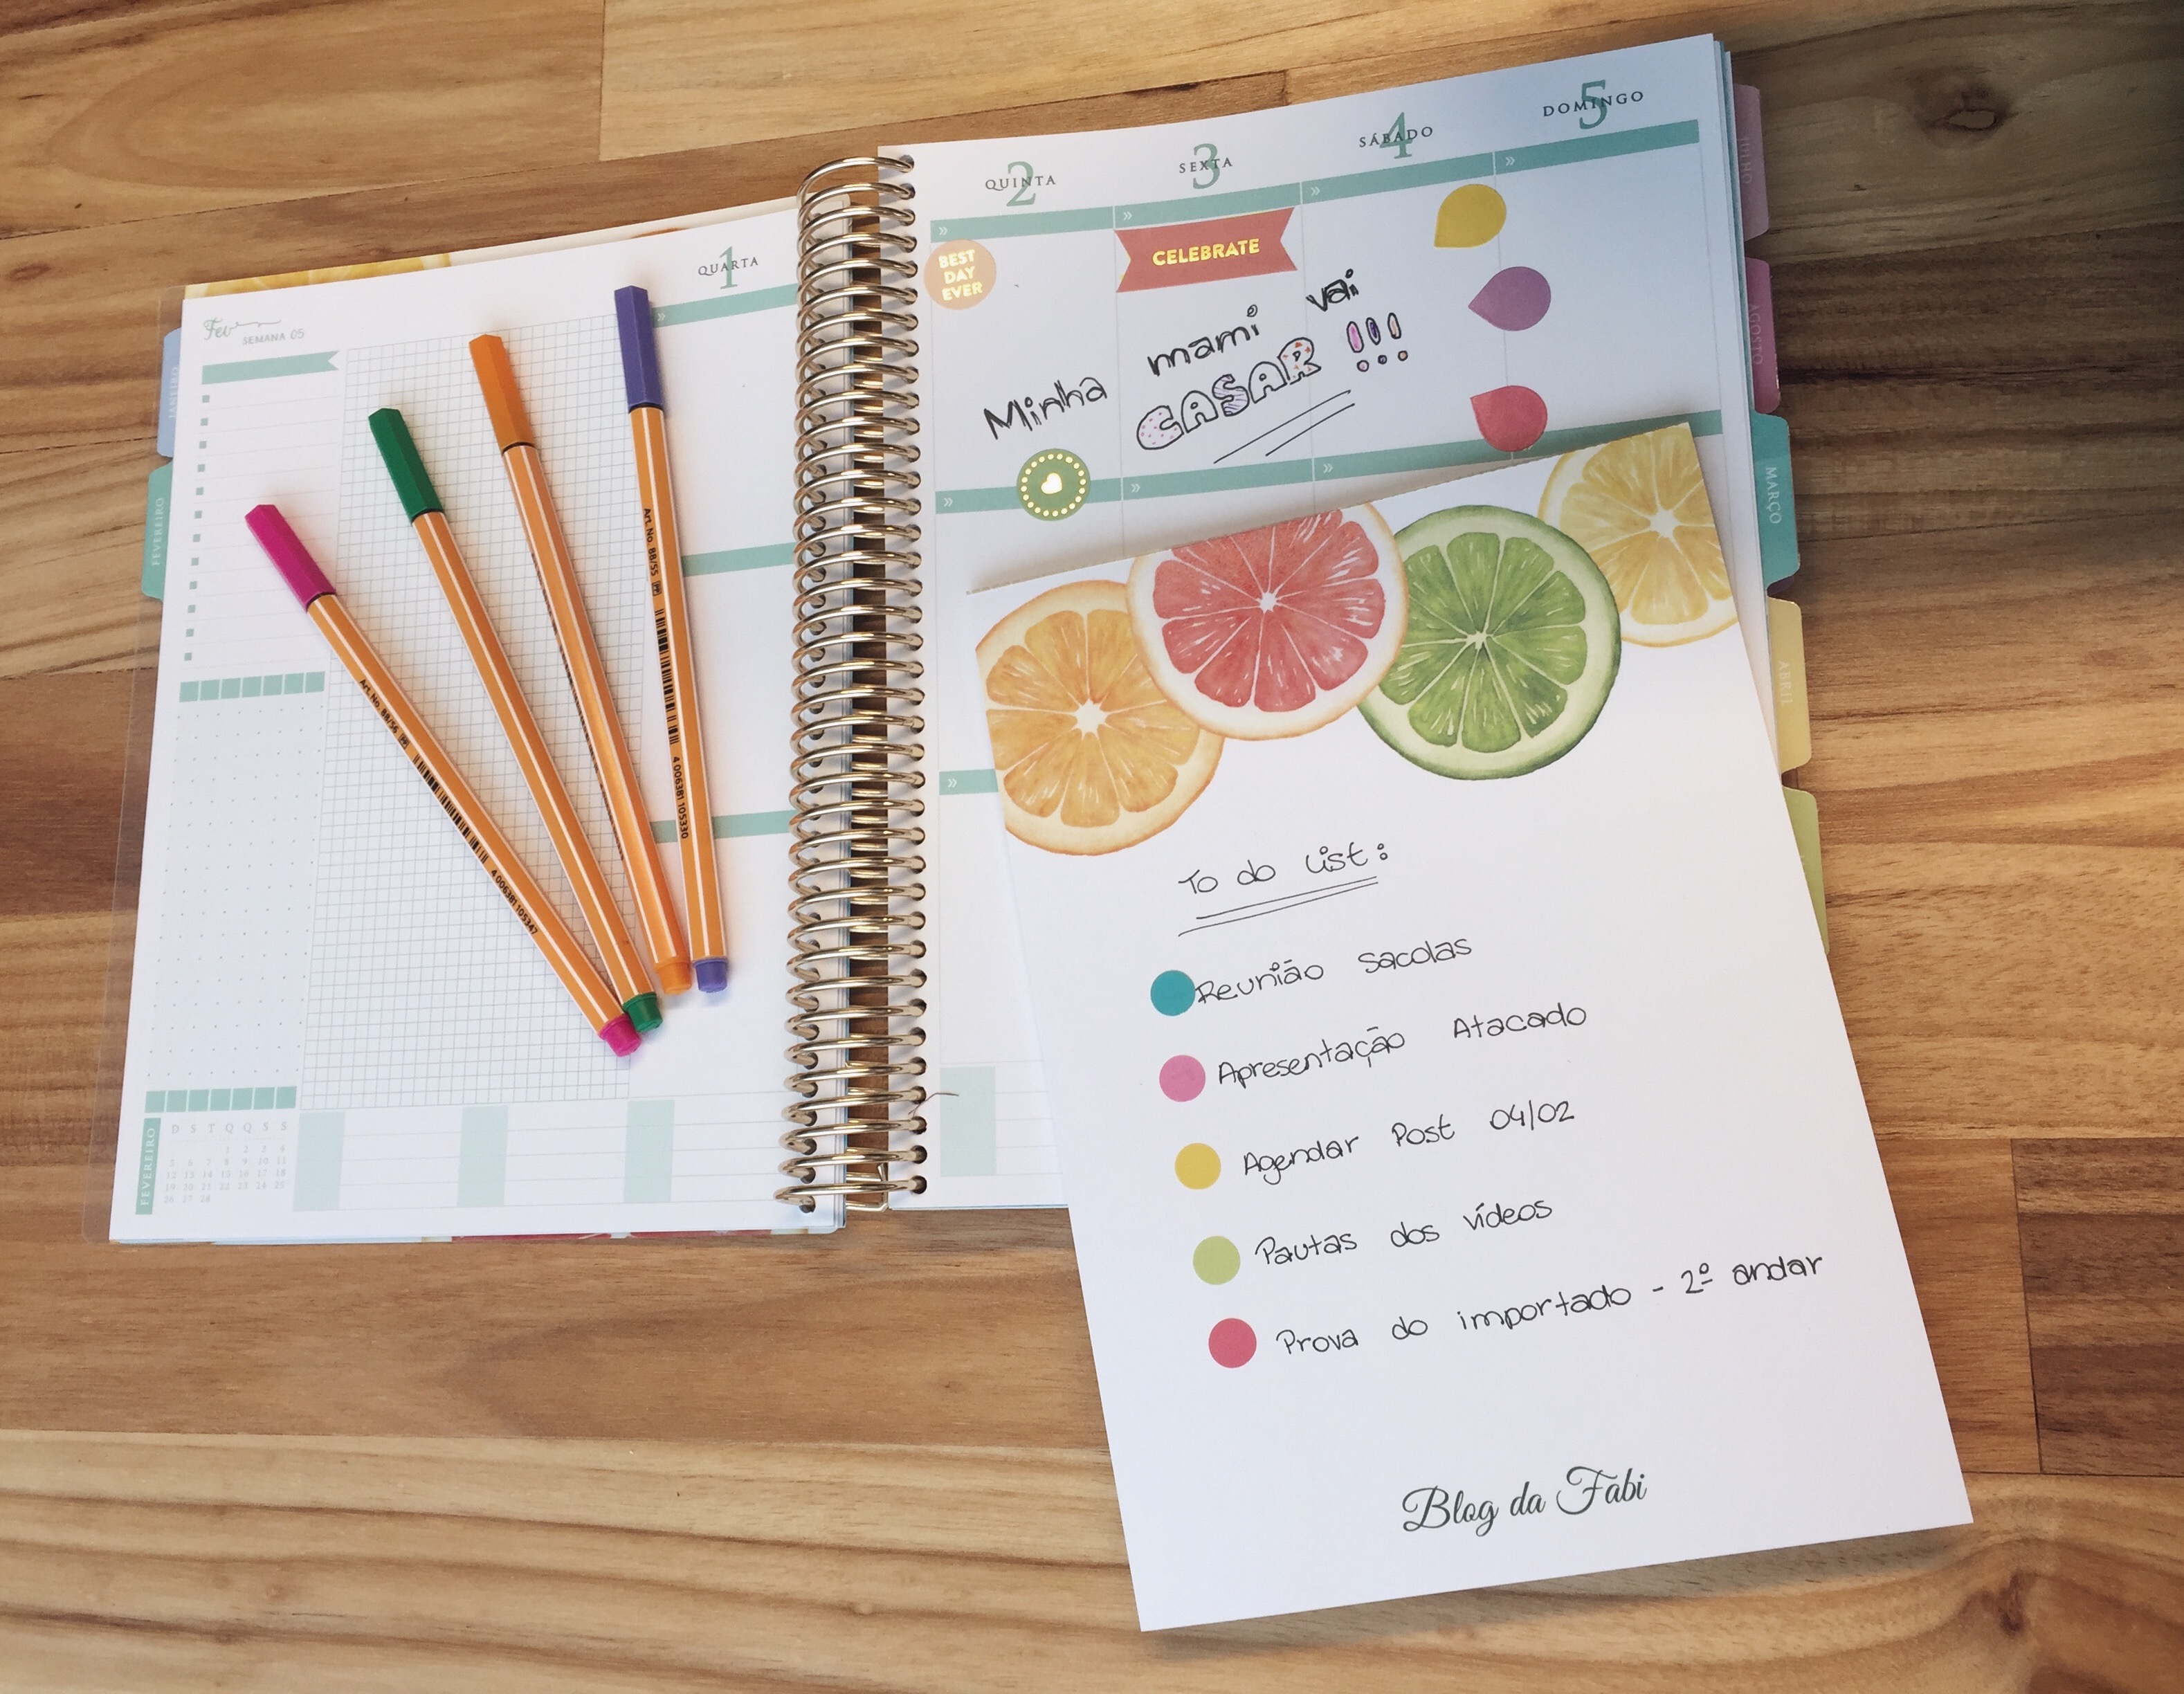 JANEIRO
FEVEREIRO
Fev
SEMANA 05
1
QUARTA
Art. No. 88/56
4 006381 105347
Art. No. 88/55
4 006381 105330
FEVEREIRO
D S T Q Q S S
1 2 3 4
5 6 7 8 9 10 11
12 13 14 15 16 17 18
19 20 21 22 23 24 25
26 27 28
2
QUINTA
3
SEXTA
4
SÁBADO
5
DOMINGO
BEST
DAY
EVER
CELEBRATE
Minha mami vai
CASAR !!!
JULHO
AGOSTO
MARÇO
ABRIL
To do List:
Reunião Sacolas
Apresentação Atacado
Agendar Post 04/02
Pautas dos vídeos
Prova do importado - 2º andar
Blog da Fabi